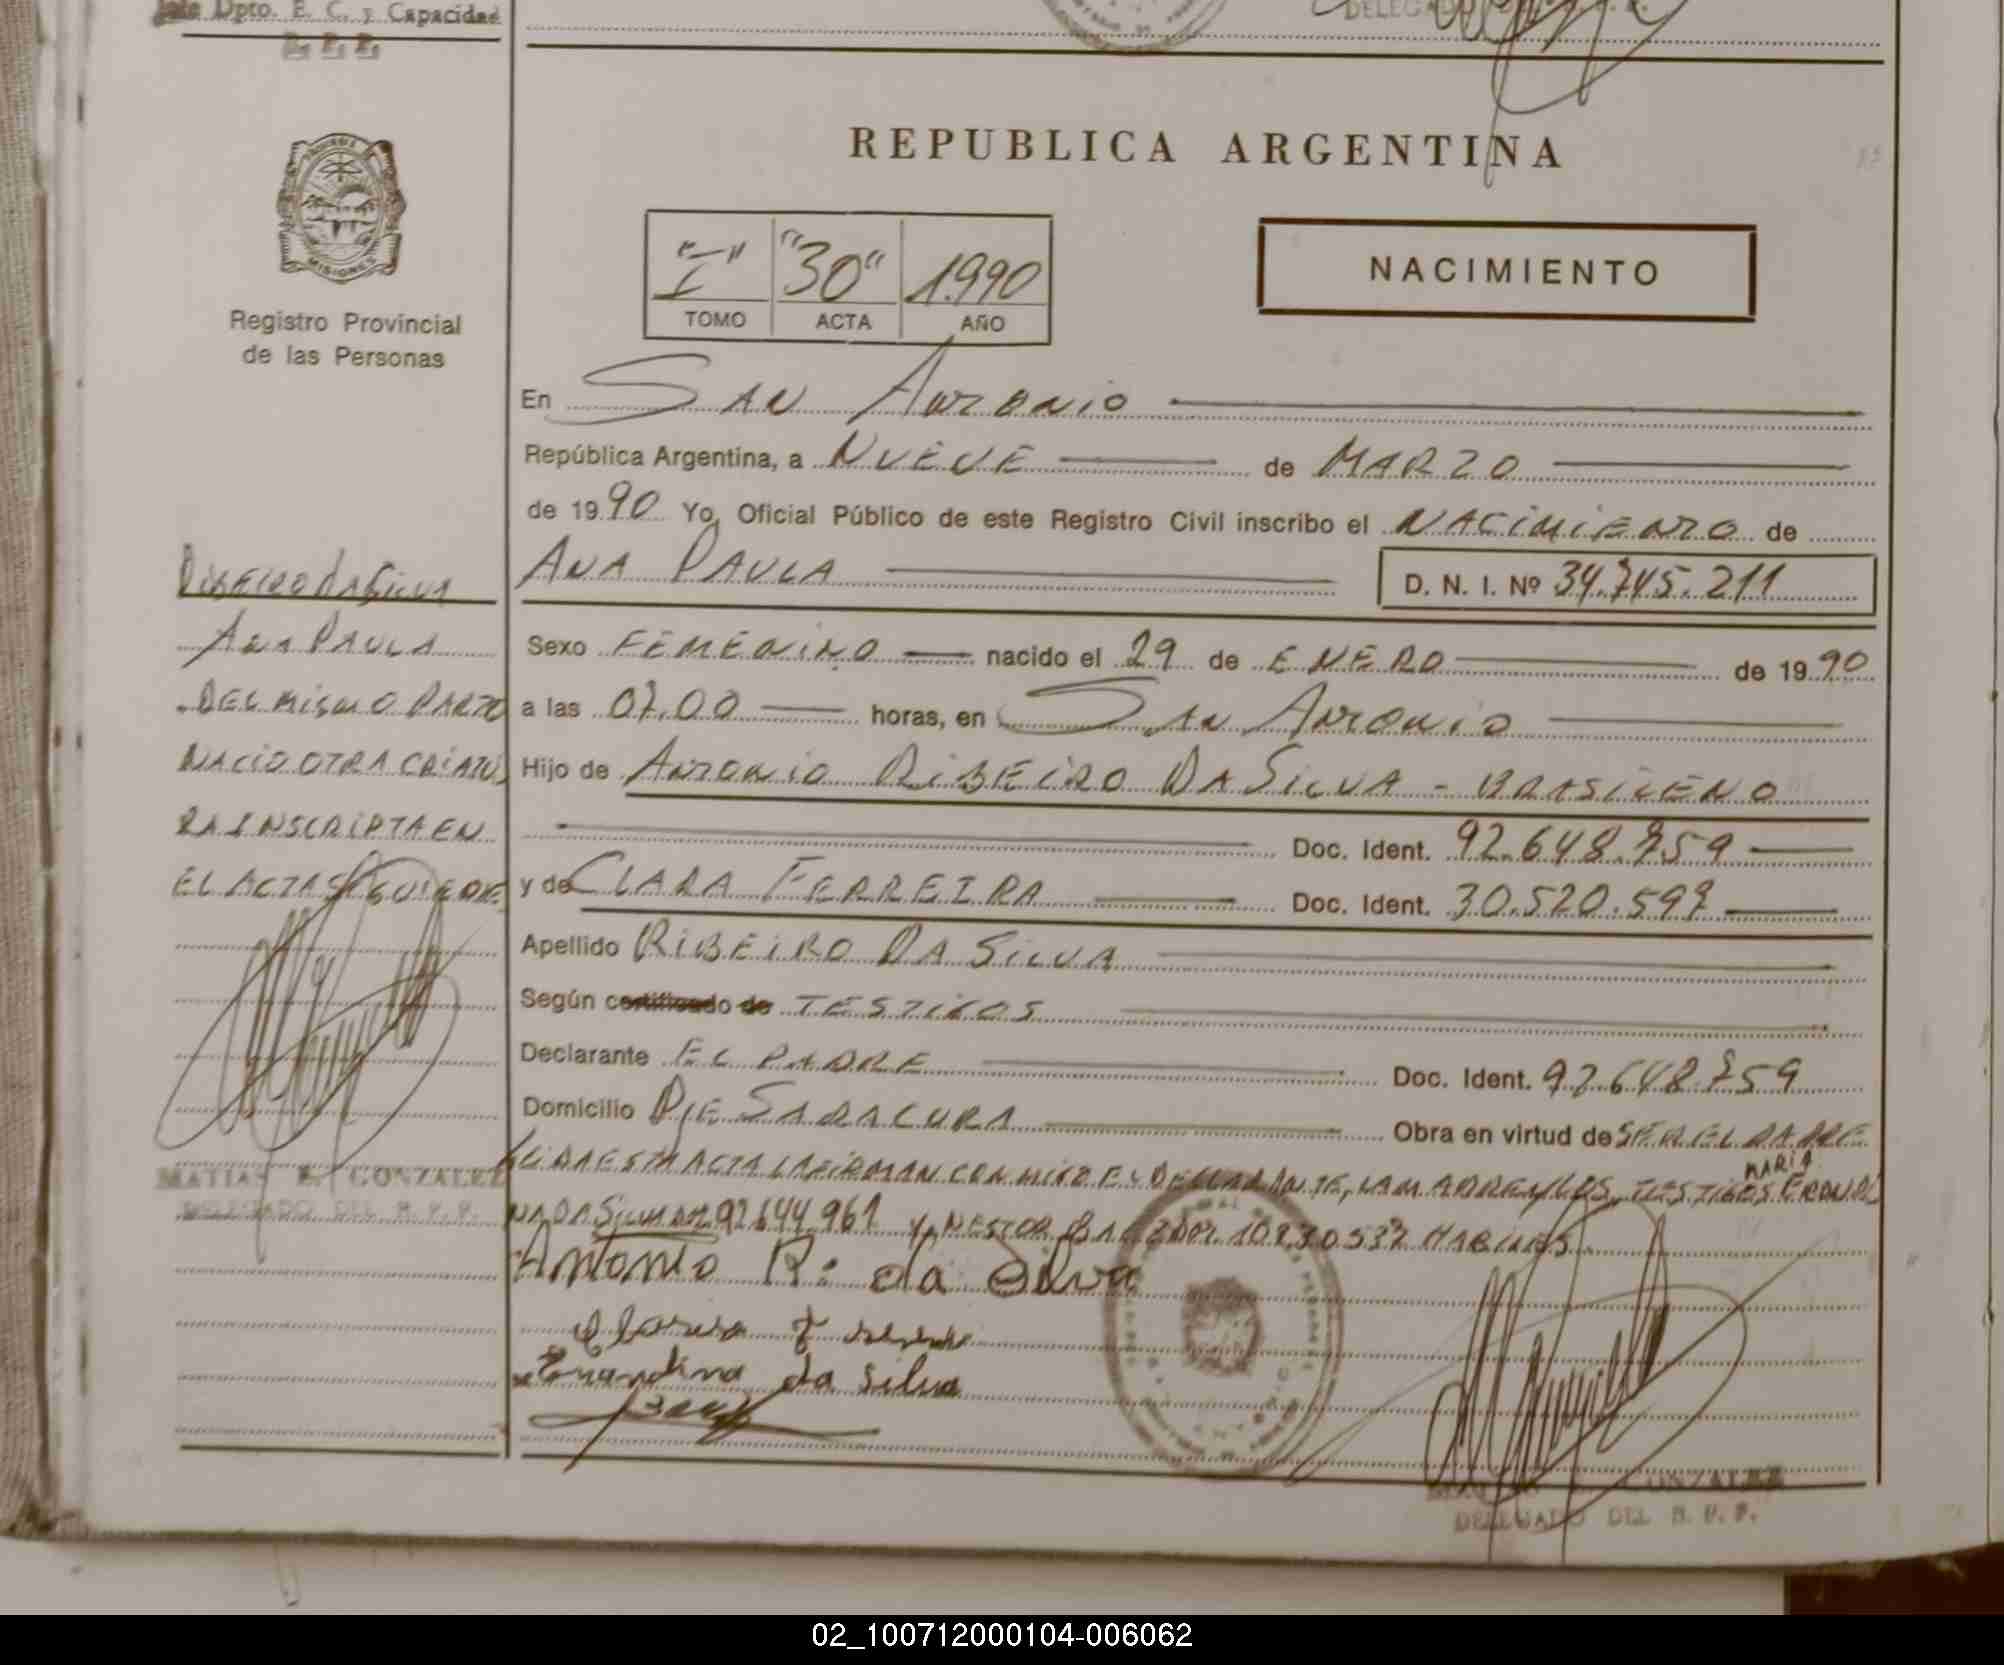 Jefe Dpto. E. C. y Capacidad
DELEGADO
REPUBLICA ARGENTINA
MISIONES
Registro Provincial
de las Personas
"I" "30" 1.990
TOMO ACTA AÑO
NACIMIENTO
En SAN ANTONIO
República Argentina, a NUEVE de MARZO
de 1990 Yo, Oficial Público de este Registro Civil inscribo el NACIMIENTO de
ANA PAULA D. N. I. Nº 34.745.211
Sexo FEMENINO nacido el 29 de ENERO de 1990
a las 07,00 horas, en SAN ANTONIO
Hijo de ANTONIO RIBEIRO DA SILVA - BRASILENO
Doc. Ident. 92.648.759
y de CLARA FERREIRA Doc. Ident. 30.520.597
Apellido RIBEIRO DA SILVA
Según certificado de TESTIGOS
Declarante EL PADRE Doc. Ident. 92648759
Domicilio PJE SARACURA Obra en virtud de SER EL PADRE
LEIDA ESTA ACTA LA FIRMAN CON MIGO EL DECLARANTE, LA MADRE Y LOS TESTIGOS MARIA
DA SILVA 92644961 Y NESTOR HABILES
Antonio R. da Silva
Erandina da Silva
RIBEIRO DA SILVA
ANA PAULA
DEL MISMO PARTO
NACIO OTRA CRIATU
RA INSCRIPTA EN
EL ACTA SIGUIENTE
MATIAS E. GONZALEZ
DELEGADO DEL R. P. P.
GONZALEZ
DELEGADO DEL R. P. P.
02_100712000104-006062